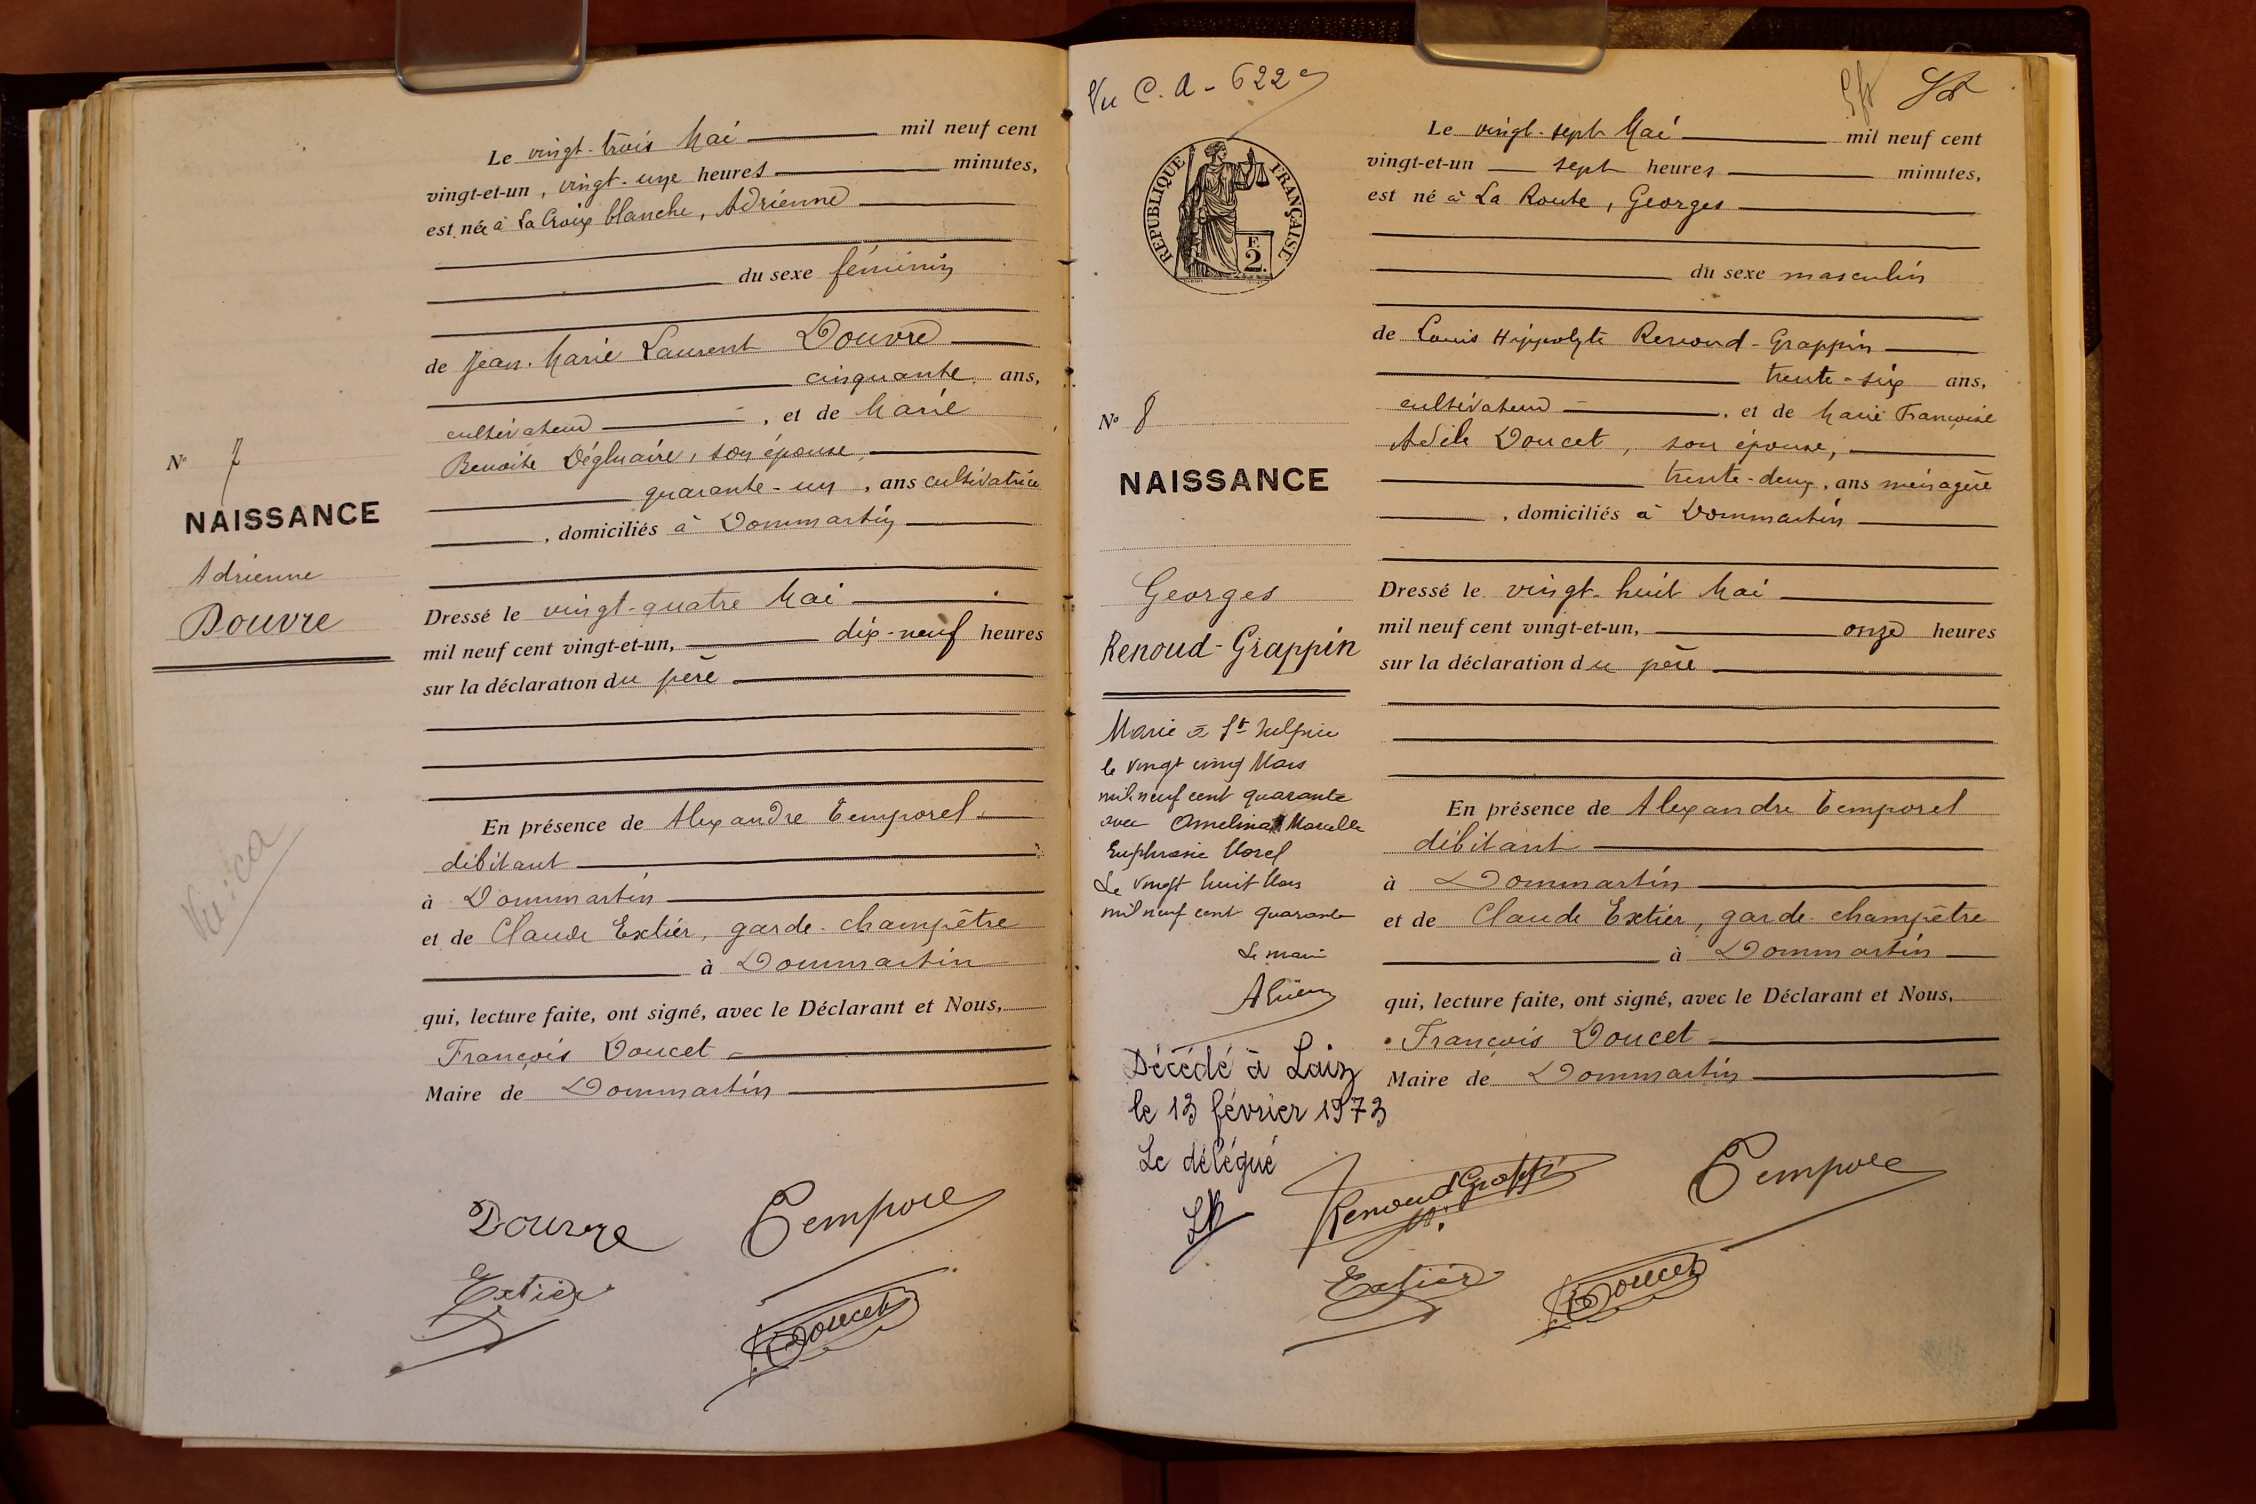 Le vingt-trois Mai mil neuf cent
vingt-et-un, vingt-une heures minutes,
est née à La Croix blanche, Adrienne
du sexe féminin
de Jean-Marie Laurent Douvre
cinquante ans,
cultivateur, et de Marie
Benoite Dégluaire, son épouse,
quarante-un, ans cultivatrice
, domiciliés à Dommartin
Dressé le vingt-quatre Mai
mil neuf cent vingt-et-un, dix-neuf heures
sur la déclaration du père
En présence de Alexandre Temporel
débitant
à Dommartin
et de Claude Extier, garde-champêtre
à Dommartin
qui, lecture faite, ont signé, avec le Déclarant et Nous,
François Doucet
Maire de Dommartin
Douvre
Tempore
Extier
Doucet
N° 7
NAISSANCE
Adrienne
Douvre
Vu: ca
Vu C. A - 622
RÉPUBLIQUE FRANÇAISE
F.
2.
N° 8
NAISSANCE
Georges
Renoud-Grappin
Marié à St Sulpice
le vingt cinq Mars
mil neuf cent quarante
avec Amelina Marcelle
Euphrasie Morel
Le vingt huit Mars
mil neuf cent quarante
Le maire
Décédé à Laiz
le 13 février 1973
Le délégué
Le vingt-sept Mai mil neuf cent
vingt-et-un sept heures minutes,
est né à La Route, Georges
du sexe masculin
de Louis Hippolyte Renoud-Grappin
trente-six ans,
cultivateur, et de Marie Françoise
Adèle Doucet, son épouse,
trente-deux, ans ménagère
, domiciliés à Dommartin
Dressé le vingt-huit Mai
mil neuf cent vingt-et-un, onze heures
sur la déclaration du père
En présence de Alexandre Temporel
débitant
à Dommartin
et de Claude Extier, garde-champêtre
à Dommartin
qui, lecture faite, ont signé, avec le Déclarant et Nous,
François Doucet
Maire de Dommartin
Renoud Grappi
Tempore
Extier
Doucet